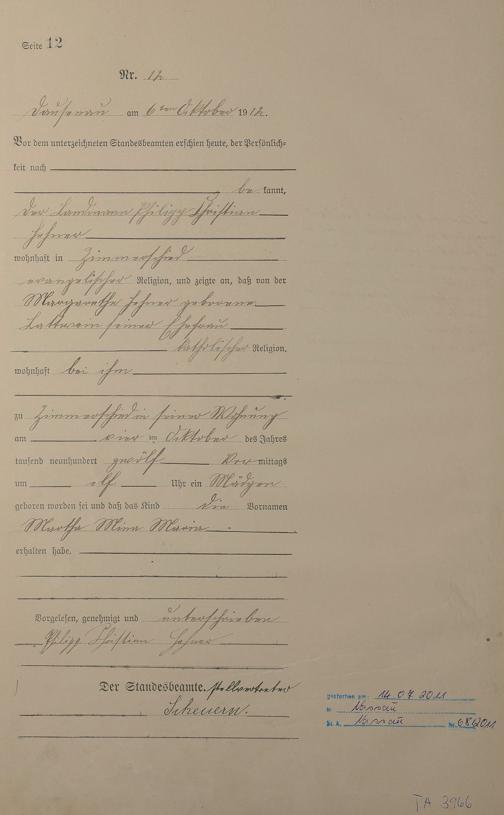 Seite 12
Nr. 12
Dausenau am 6ten Oktober 1912.
Vor dem unterzeichneten Standesbeamten erschien heute, der Persönlich-
keit nach
be kannt,
der Landmann Philipp Christian
Hehner
wohnhaft in Zimmerschied
evangelischer Religion, und zeigte an, daß von der
Margarethe Hehner geborene
seiner Ehefrau
katholischer Religion,
wohnhaft bei ihm
zu Zimmerschied in seiner Wohnung
am vier ten Oktober des Jahres
tausend neunhundert zwölf Vor mittags
um elf Uhr ein Mädchen
geboren worden sei und daß das Kind die Vornamen
Martha Mina Maria
erhalten habe.
Vorgelesen, genehmigt und unterschrieben
Philipp Christian Hehner
Der Standesbeamte. stellvertreter
Scheuern.
gestorben am 14.07.2011
in Nassau
St. A. Nassau Nr. 68/2011
TA 3966